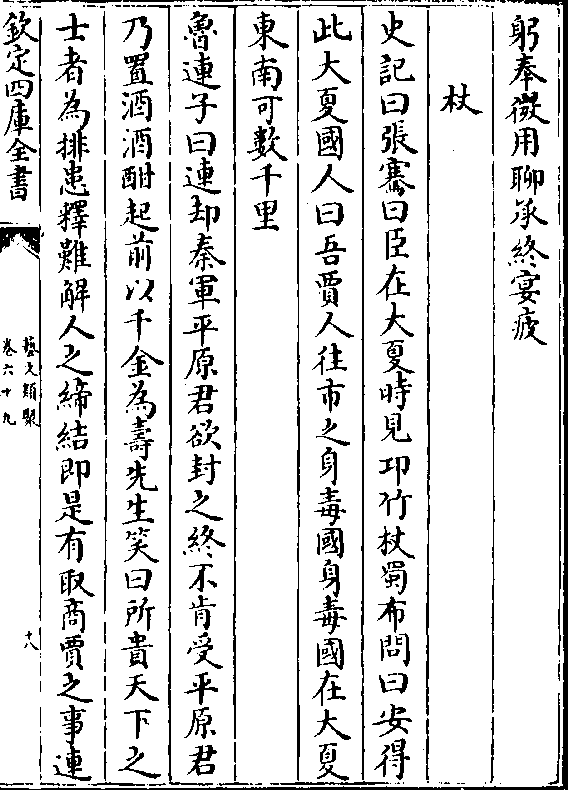 躬奉徴用聊承終宴疲
杖
史記曰張騫曰臣在大夏時見卭竹杖蜀布問曰安得
此大夏國人曰吾賈人往市之身毒國身毒國在大夏
東南可數千里
魯連子曰連却秦軍平原君欲封之終不肯受平原君
乃置酒酒酣起前以千金為壽先生笑曰所貴天下之
士者為排患釋難解人之締結即是有取商賈之事連
欽定四庫全書
藝文類聚
卷六十九
十八